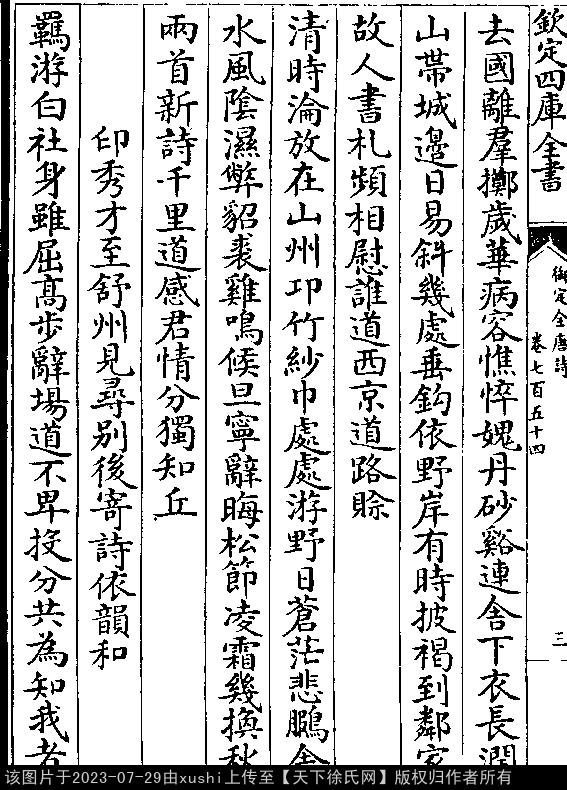 欽定四庫全書
御定全唐詩
卷七百五十四
三
去國離羣擲歲華病容憔悴媿丹砂谿連舍下衣長潤
山帶城邊日易斜幾處垂鈎依野岸有時披褐到鄰家
故人書札頻相慰誰道西京道路賖
清時淪放在山州卭竹紗巾處處游野日蒼茫悲鵩舍
水風陰濕弊貂裘雞鳴候旦寧辭晦松節凌霜幾換秋
兩首新詩千里道感君情分獨知丘
印秀才至舒州見尋别後寄詩依韻和
羈游白社身雖屈高步辭場道不卑投分共為知我者
该图片于2023-07-29由xushi上传至【天下徐氏网】版权归作者所有